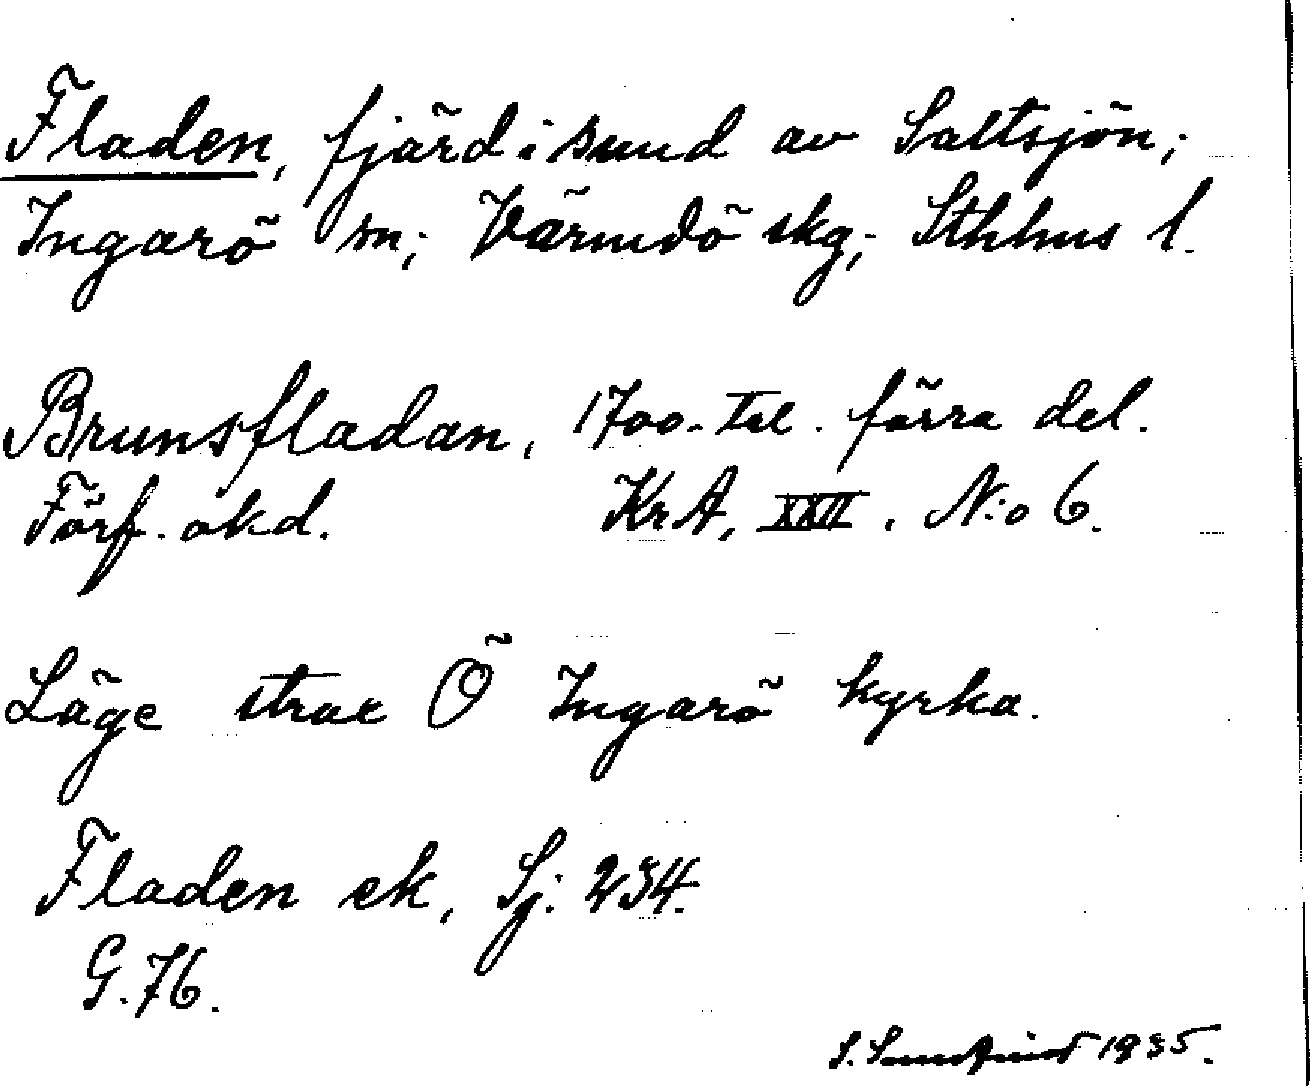 Fladen, fjärd i sund av Saltsjön;
Ingarö sn; Värmdö skg; Sthlms l.
Brunsfladan, 1700-tal. förra del.
Förf. okd. KrA, XXII. N:o 6.
Läge strax Ö Ingarö kyrka.
Fladen ek, Sj: 234.
G. 76.
S. 1935.